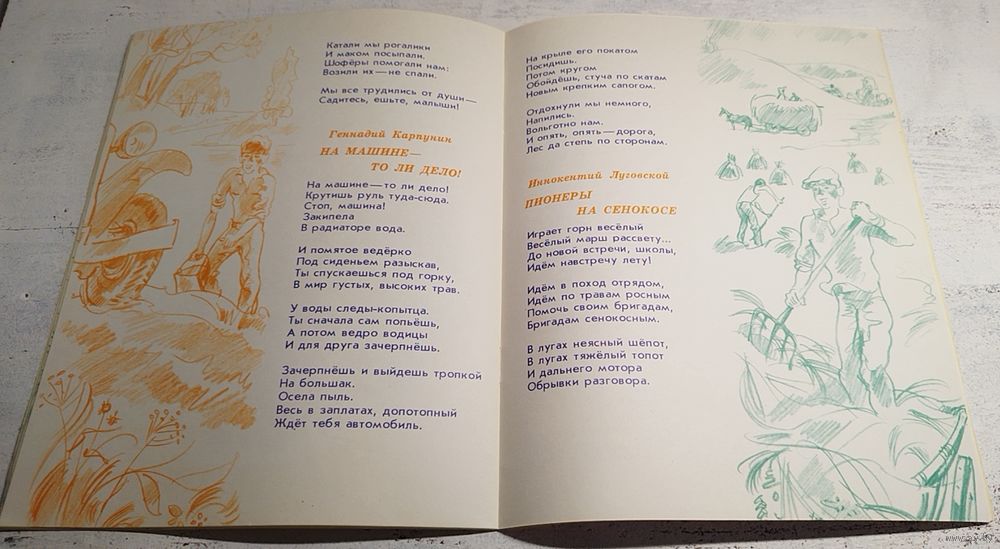 Катали мы рогалики
И маком посыпали.
Шофёры помогали нам:
Возили их — не спали.
Мы все трудились от души —
Садитесь, ешьте, малыши!
Геннадий Карпунин
НА МАШИНЕ —
ТО ЛИ ДЕЛО!
На машине — то ли дело!
Крутишь руль туда-сюда.
Стоп, машина!
Закипела
В радиаторе вода.
И помятое ведёрко
Под сиденьем разыскав,
Ты спускаешься под горку,
В мир густых, высоких трав.
У воды следы-копытца.
Ты сначала сам попьёшь,
А потом ведро водицы
И для друга зачерпнёшь.
Зачерпнёшь и выйдешь тропкой
На большак.
Осела пыль.
Весь в заплатах, допотопный
Ждёт тебя автомобиль.
На крыле его покатом
Посидишь.
Потом кругом
Обойдёшь, стуча по скатам
Новым крепким сапогом.
Отдохнули мы немного,
Напились.
Вольготно нам.
И опять, опять — дорога,
Лес да степь по сторонам.
Иннокентий Луговской
ПИОНЕРЫ
НА СЕНОКОСЕ
Играет горн весёлый
Весёлый марш рассвету...
До новой встречи, школы,
Идём навстречу лету!
Идём в поход отрядом,
Идём по травам росным
Помочь своим бригадам,
Бригадам сенокосным.
В лугах неясный шёпот,
В лугах тяжёлый топот
И дальнего мотора
Обрывки разговора.